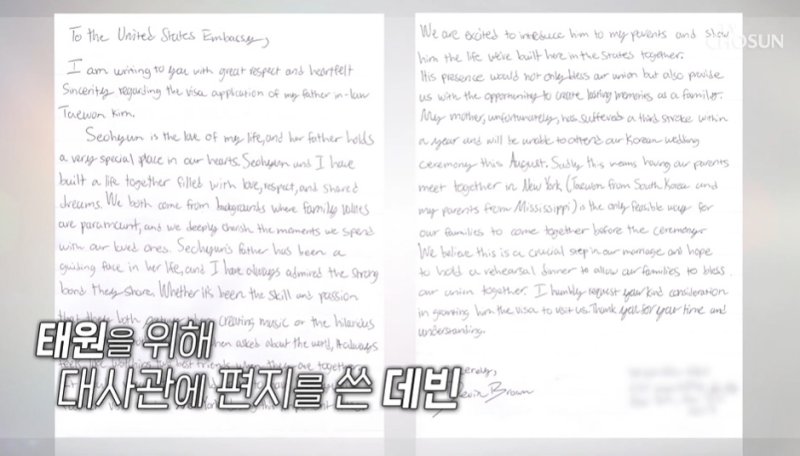 To the United States Embassy,
I am writing to you with great respect and heartfelt
Sincerity regarding the visa application of my father in-law
Taewon Kim.
Seohyun is the love of my life, and her father holds
a very special place in our hearts. Seohyun and I have
built a life together filled with love, respect, and shared
dreams. We both come from backgrounds where family values
are paramount, and we deeply cherish the moments we spend
with our loved ones. Seohyun's father has been a
guiding force in her life, and I have always admired the strong
bond they share. Whether it's been the skill and passion
that they both creating music or the hilarious
when asked about the world, it always
best friends when they are together
We are excited to introduce him to my parents and show
him the life we've built here in the States together.
His presence would not only bless our union but also provide
us with the opportunity to create lasting memories as a family.
My mother, unfortunately, has suffered a third stroke within
a year and will be unable to attend our Korean wedding
ceremony this August. Sadly this means having our parents
meet together in New York (Taewon from South Korea and
my parents from Mississippi) is the only feasible way for
our families to come together before the ceremony.
We believe this is a crucial step in our marriage and hope
to hold a rehearsal dinner to allow our families to bless
our union together. I humbly request your kind consideration
in granting him the visa to visit us. Thank you for your time and
understanding.
Sincerely,
Devin Brown
CHOSUN
태원을 위해
대사관에 편지를 쓴 데빈